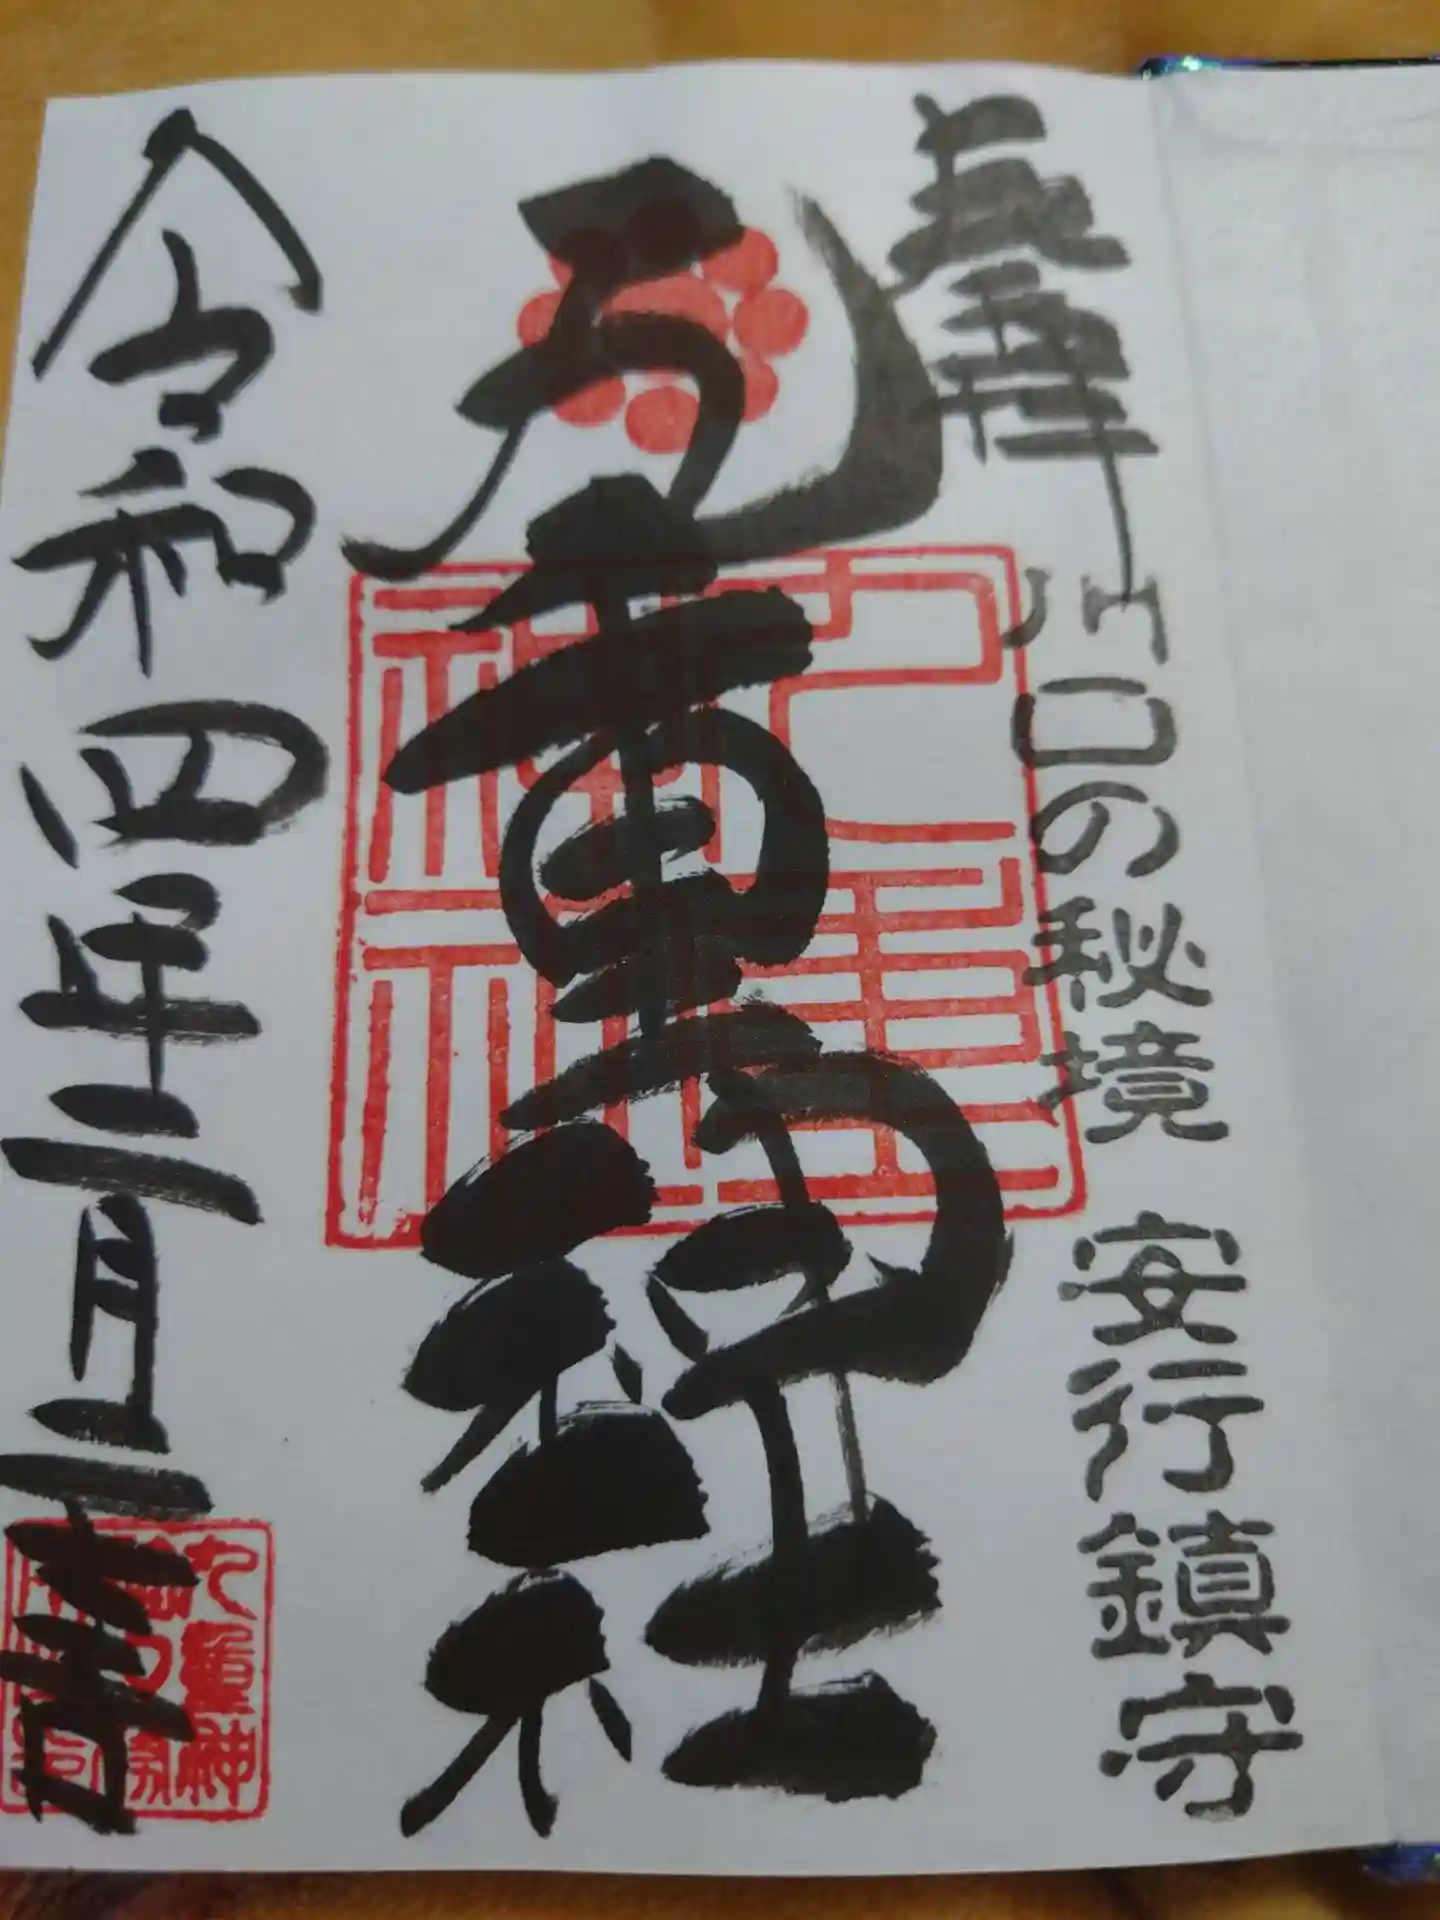 奉拝
川口の秘境 安行鎮守
九重神社
九重神社
令和四年二月二十三日
九重神